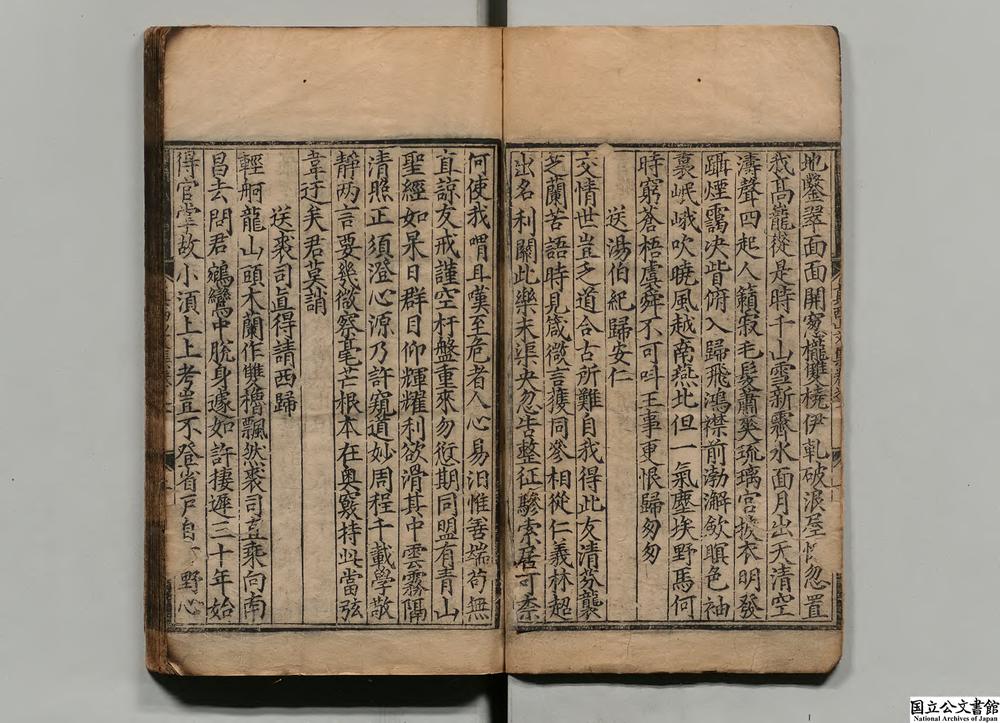 地鑿翠面面開窓櫳雙橈伊軋破浪屋恍忽置
我髙龍嵸是時千山雪新霽水面月出天清空
濤聲四起人籟寂毛髪蕭爽琉璃宮披衣明發
躡煙靄决眥俯入歸飛鴻襟前渤澥斂暝色袖
裏岷峨吹曉風越南燕北但一氣塵埃野馬何
時窮蒼梧虞舜不可呌王事更恨歸匆匆
送湯伯紀歸安仁
交情世豈乏道合古所難自我得此友清芬襲
芝蘭苦語時見箴微言獲同參相從仁義林超
出名利關此樂未渠央忽告整征驂索居可柰
何使我喟且嘆至危者人心易汨惟善端苟無
直諒友戒謹空杅盤重來勿愆期同盟有青山
聖經如杲日群目仰輝耀利欲滑其中雲霧隔
清照正須澄心源乃許窺道妙周程千載學敬
靜两言要幾微察毫芒根本在奥竅持此當弦
韋迂矣君莫誚
送裘司直得請西歸
輕舸龍山頭木蘭作雙櫓飄然裘司直乘向南
昌去問君鵷鸞中脫身遽如許棲遲三十年始
得官掌故小湏上上考豈不登省戸自 野心
国立公文書館
National Archives of Japan